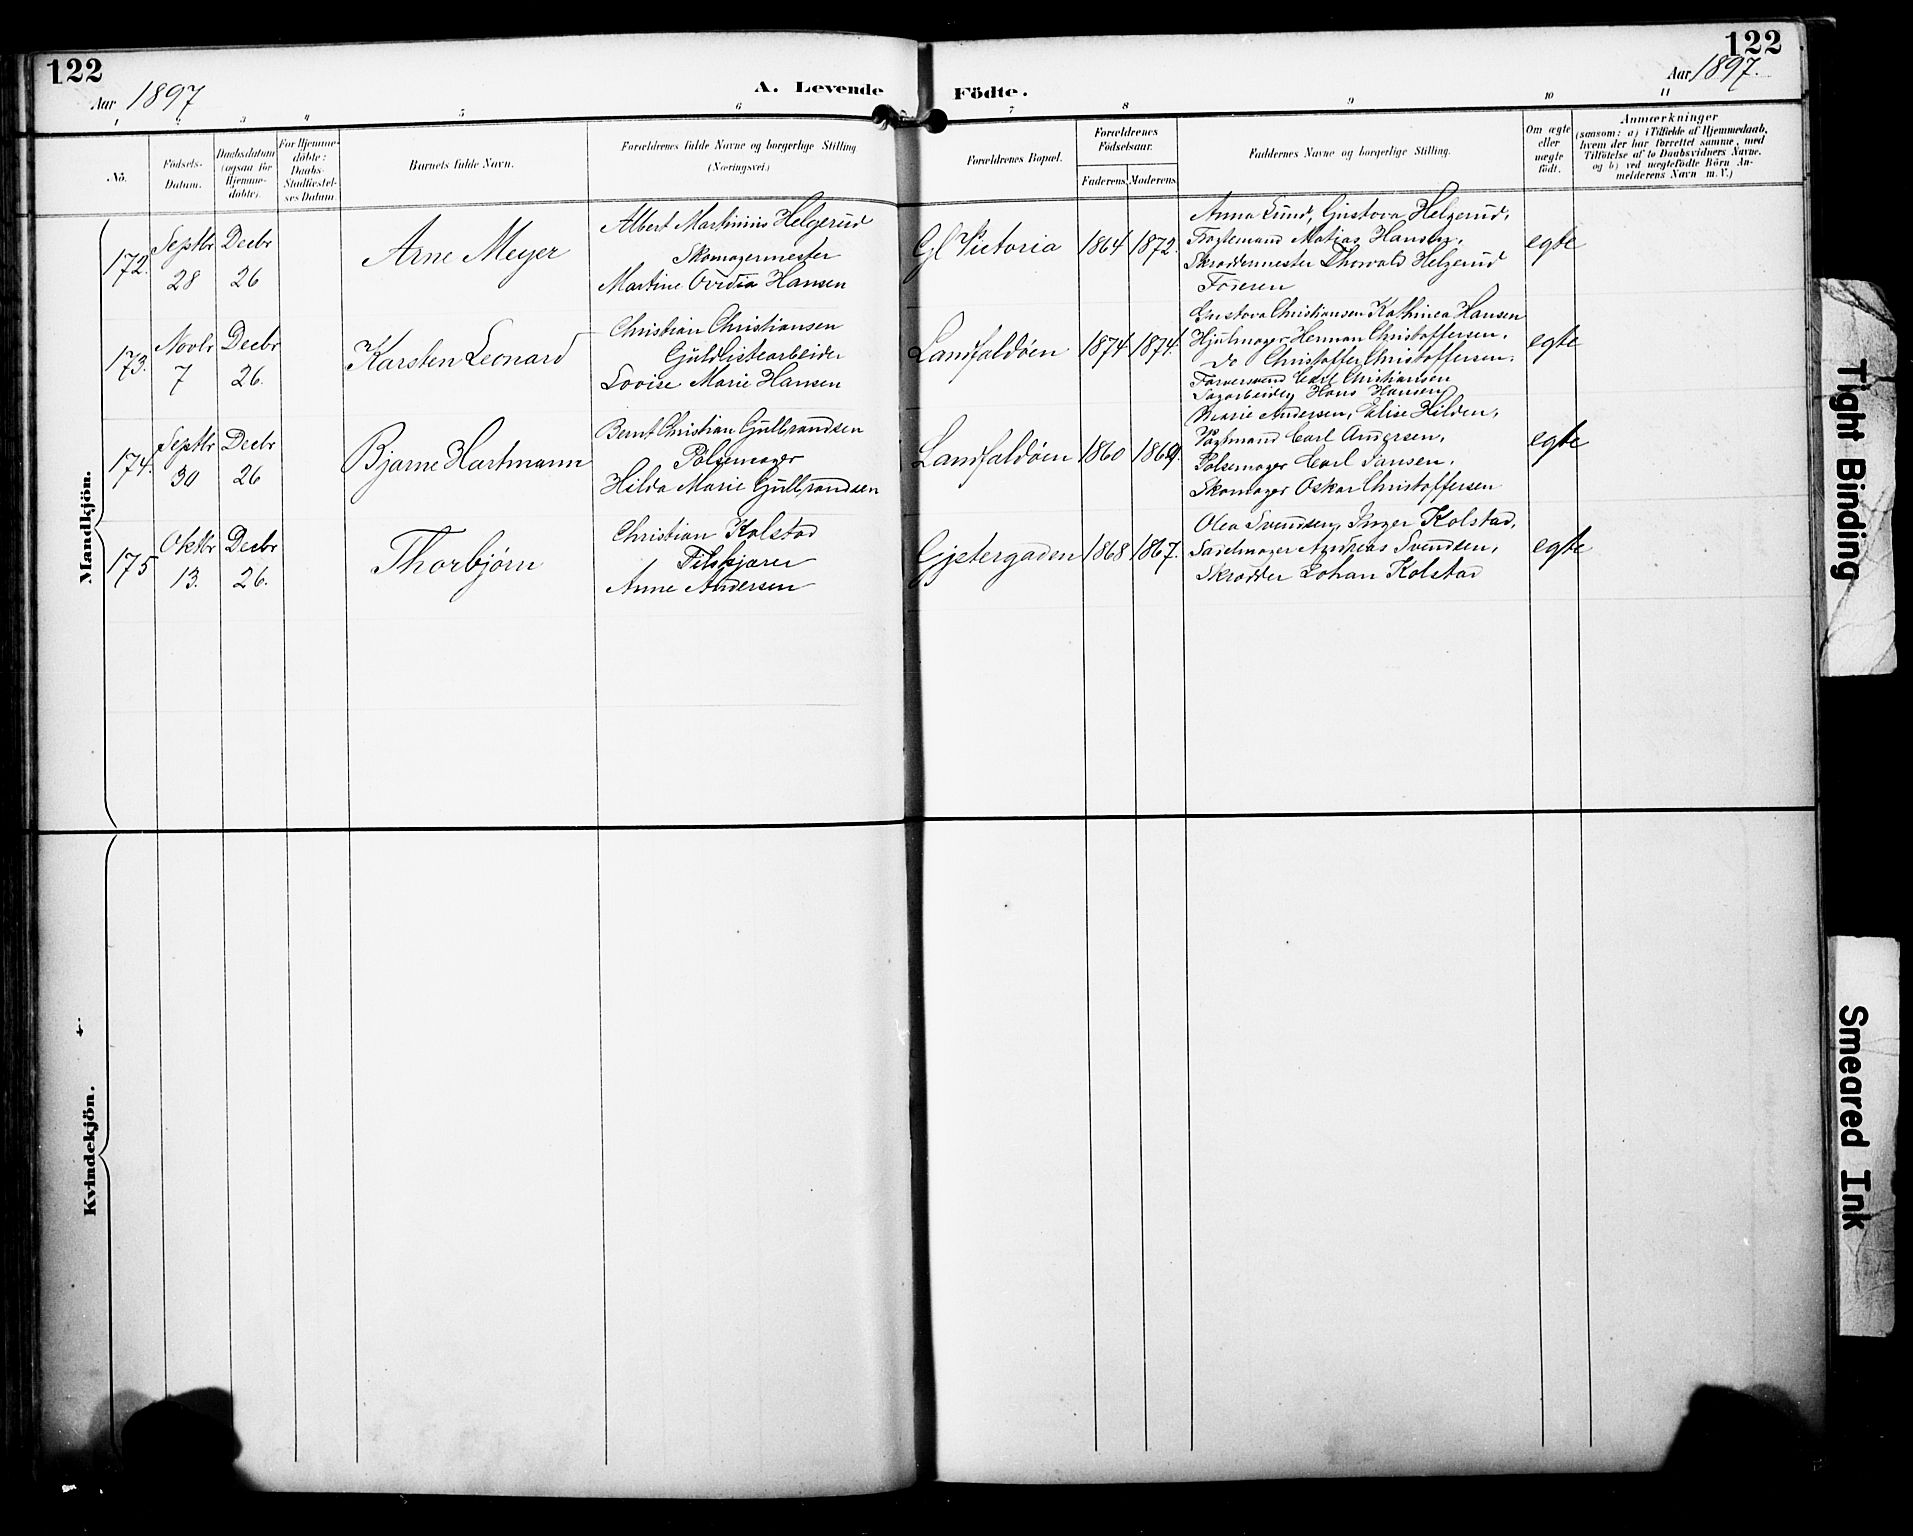 122
122
Aar 1897
Aar 1897.
A. Levende Födte.
1 2 3 4 5 6 7 8 9 10 11
No.
Födsels-
Datum.
Daabsdatum
(ogsaa for
Hjemme-
döbte).
For Hjemme-
döbte:
Daabs-
Stadfæstel-
ses Datum.
Barnets fulde Navn.
Forældrenes fulde Navne og borgerlige Stilling
(Næringsvei.)
Forældrenes Bopæl.
Forældrenes
Födselsaar.
Faderens. Moderens.
Faddernes Navne og borgerlige Stilling.
Om ægte
eller
uægte
födt.
Anmærkninger
(saasom: a) i Tilfælde af Hjemmedaab,
hvem der har forrettet samme, med
Tilföielse af to Daabsvidners Navne.
og b) ved uægtefödte Börn An-
melderens Navn m. V.)
Mandkjön.
172.
Septbr
28
Decbr
26
Arne Meyer
Albert Martinius Helgerud
Skomagermester
Martine Ovidia Hansen
Gl Victoria
1864
1872
Anna Lund, Gustava Helgerud,
Matias Hansen,
Skræddermester Thorvald Helgerud
egte
173.
Novbr
7
Decbr
26.
Karsten Leonard
Christian Christiansen
Guldlistearbeider
Lovise Marie Hansen
Landfaldøen
1874
1874.
Gustava Christiansen Kathinca Hansen
Hjulmager Herman Christoffersen,
Do Christoffer Christoffersen,
Farversvend Carl Christiansen
Sagarbeider Hans Hansen
egte
174.
Septbr
30
Decbr
26
Bjarne Hartmann
Bernt Christian Gulbrandsen
Pølsemager
Hilda Marie Gulbrandsen
Landfaldøen
1860
1869.
Marie Andersen, Elise Hilden,
Vogtmand Carl Andersen,
Pølsemager Carl Jansen,
Skomager Oskar Christoffersen
egte
175
Oktbr
13.
Decbr
26.
Thorbjørn
Christian Kolstad
Filskjærer
Anne Andersen
Gjetergaden
1868
1867.
Olea Svendsen, Inger Kolstad,
Sadelmager Andreas Svendsen,
Skrædder Johan Kolstad
egte
Kvindekjön.
Tight Binding
Smeared Ink